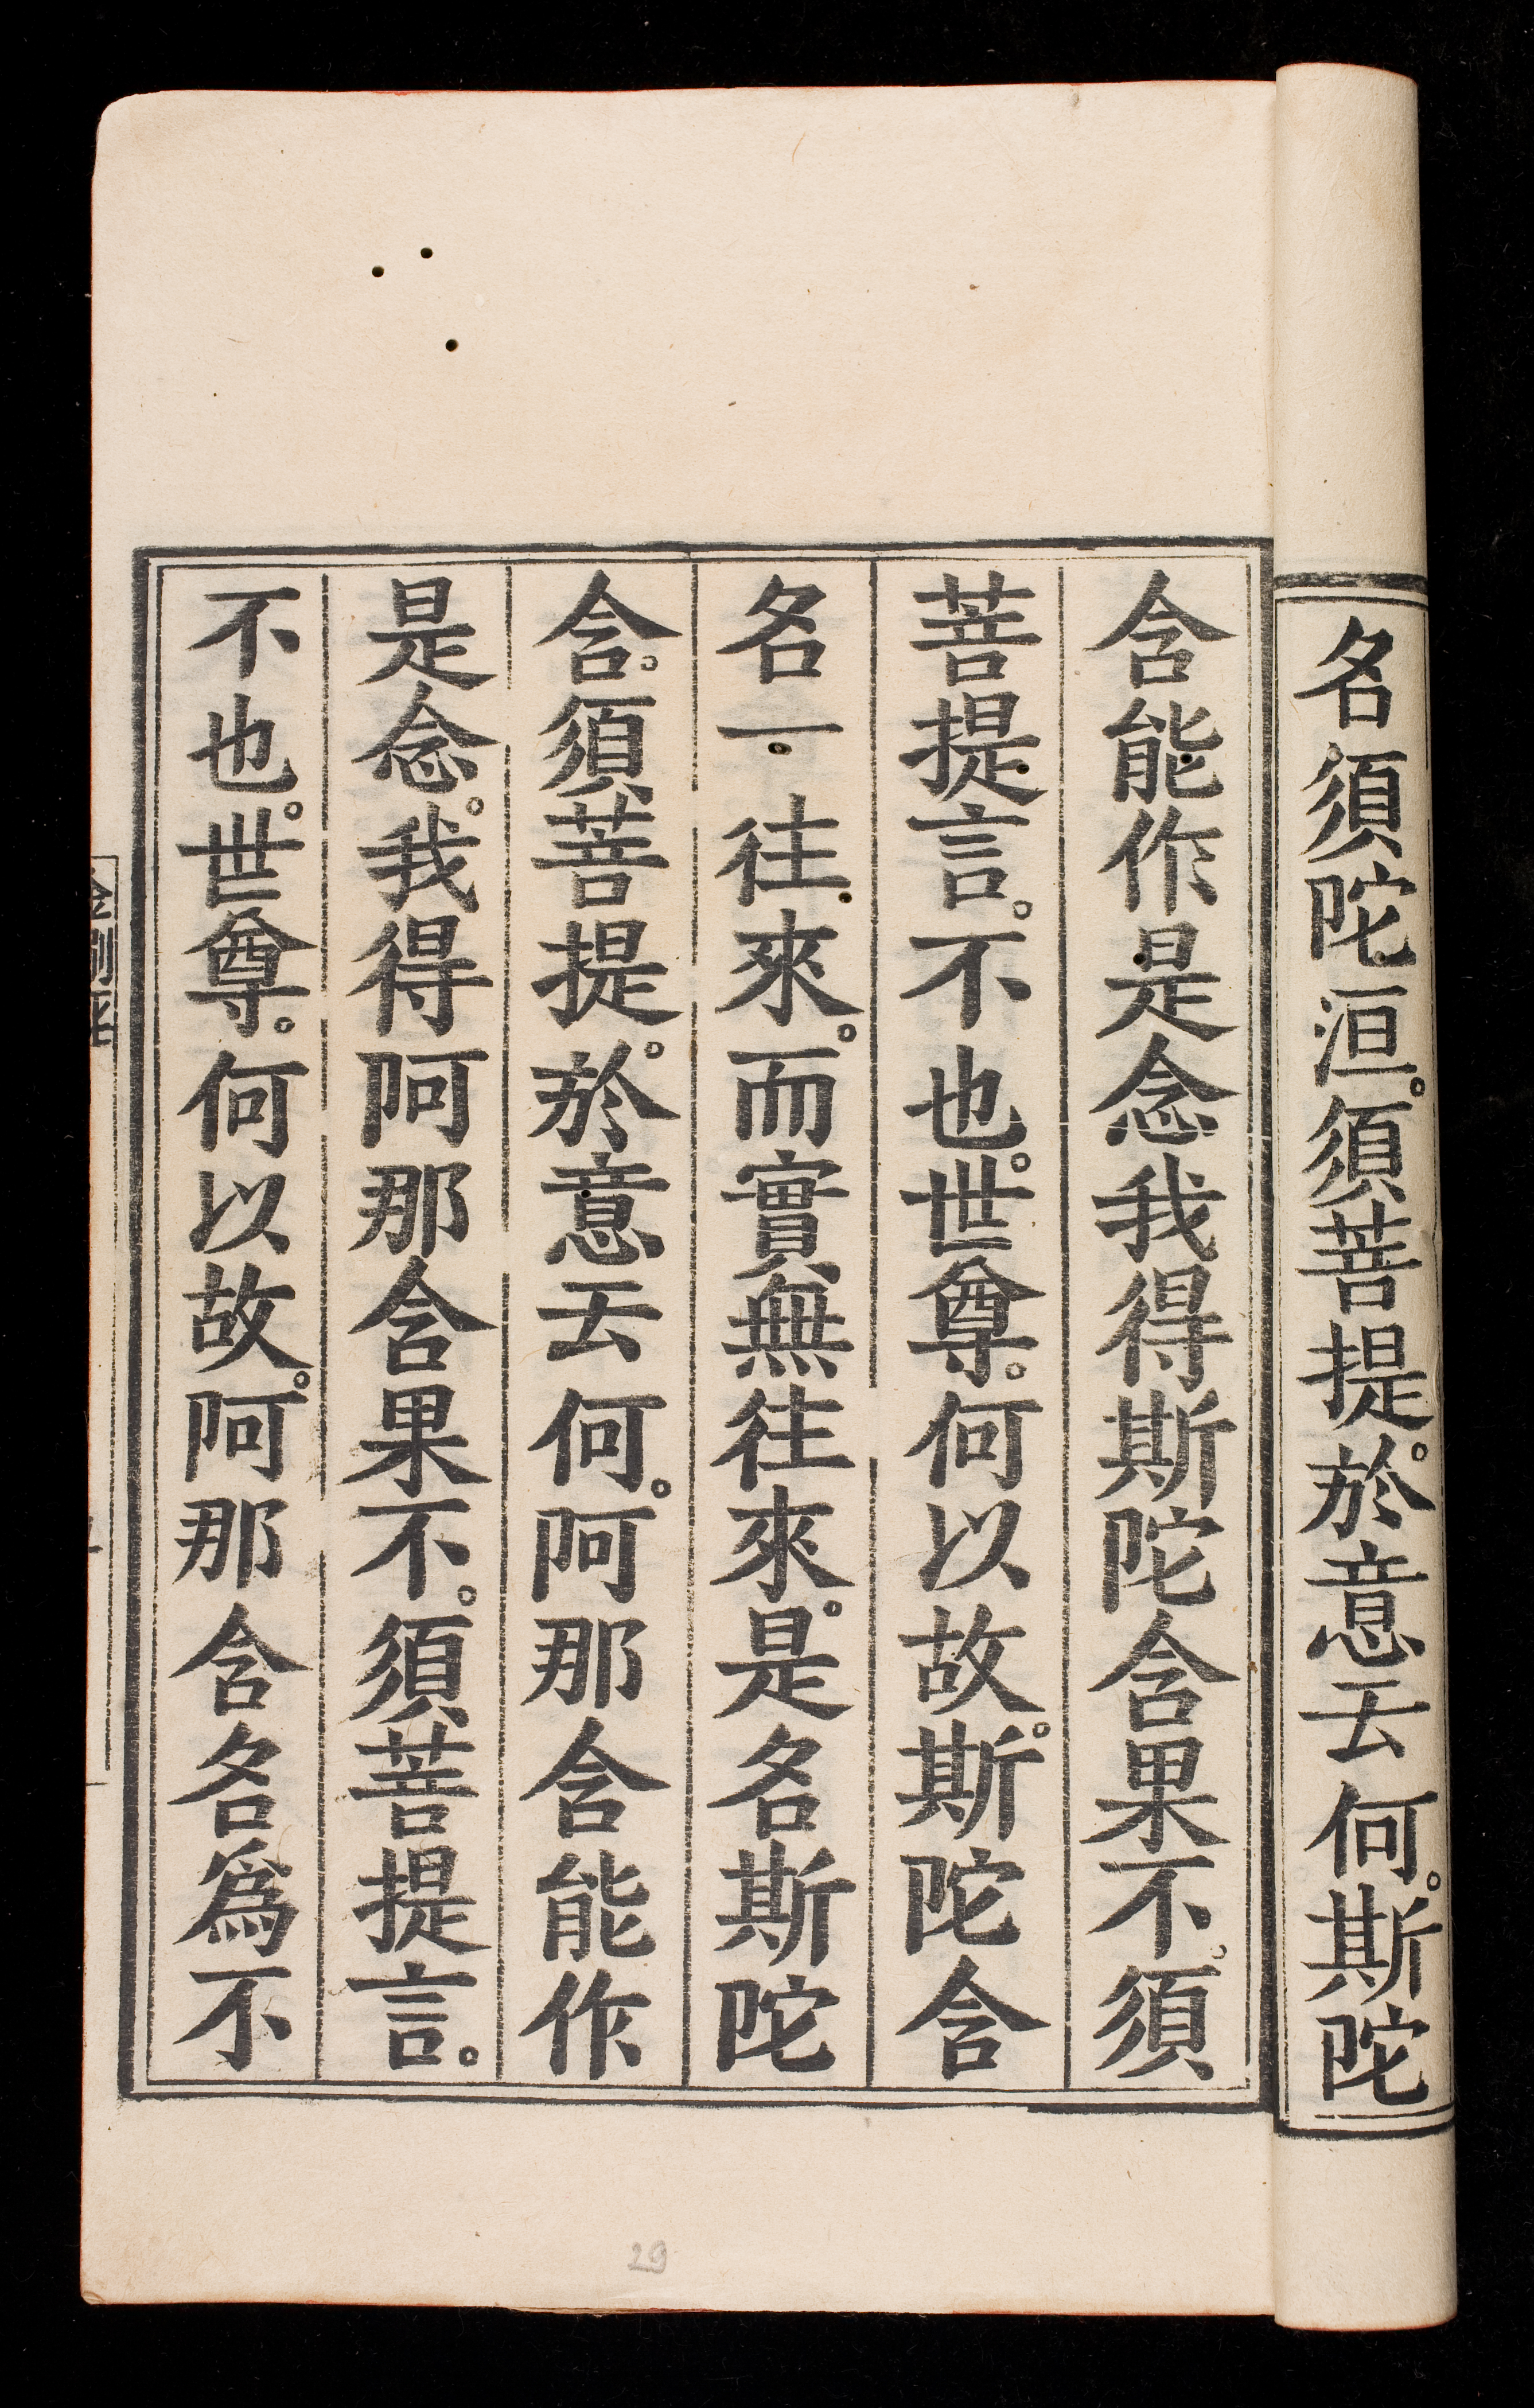 名須陀洹。須菩提。於意云何。斯陀
含能作是念我得斯陀含果不。須
菩提言。不也。世尊。何以故。斯陀含
名一往來。而實無往來。是名斯陀
含。須菩提。於意云何。阿那含能作
是念。我得阿那含果不。須菩提言。
不也。世尊。何以故。阿那含名爲不
29